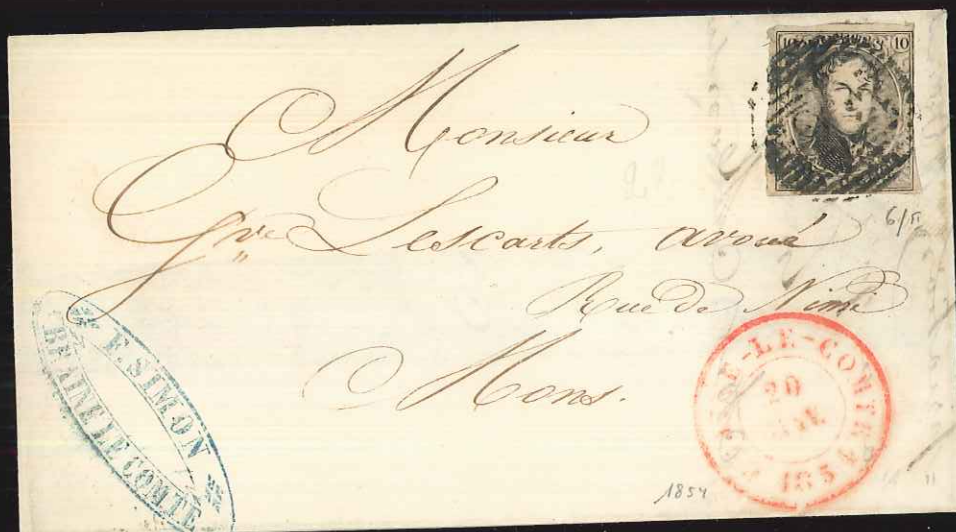 10 10
Monsieur
Gve Lescarts, avoué
Rue de Nimi
Mons.
6/
F. SIMON
BRAINE LE COMTE
-LE-COMTE
20
185
1854